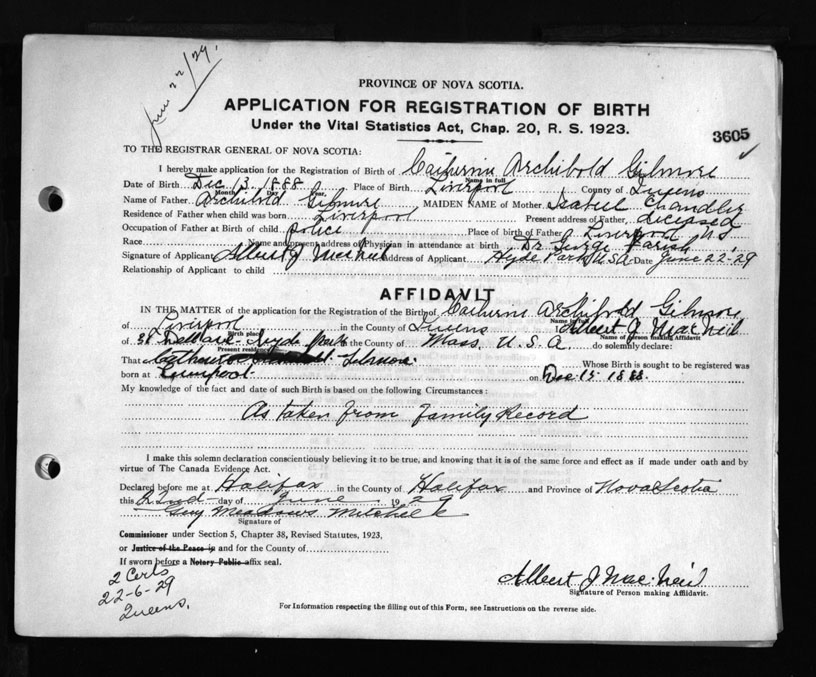 June 22/29.
PROVINCE OF NOVA SCOTIA.
APPLICATION FOR REGISTRATION OF BIRTH
Under the Vital Statistics Act, Chap. 20, R. S. 1923.
3605
TO THE REGISTRAR GENERAL OF NOVA SCOTIA:
I hereby make application for the Registration of Birth of Catherine Archibold Gilmore
Name in full
Date of Birth Dec 13. 1888 Place of Birth Liverpool County of Queens
Month Day Year
Name of Father Archibold Gilmore MAIDEN NAME of Mother Isabel Chandler
Residence of Father when child was born Liverpool Present address of Father, deceased
Occupation of Father at Birth of child Police Place of birth of Father Liverpool N.S.
Race Name and present address of Physician in attendance at birth Dr. George Farish
Signature of Applicant Albert J MacNeil Address of Applicant Hyde Park U.S.A. Date June 22-29
Relationship of Applicant to child
AFFIDAVIT
IN THE MATTER of the application for the Registration of the Birth of Catherine Archibold Gilmore
Name in full
of Liverpool in the County of Queens I Albert J MacNeil
Birth place Name of person making Affidavit
of Hyde Park in the County of Mass, U.S.A. do solemnly declare:
Present residence
That Catherine Gilmore Whose Birth is sought to be registered was
born at Liverpool on Dec 13 1888.
My knowledge of the fact and date of such Birth is based on the following Circumstances:
As taken from Family Record
I make this solemn declaration conscientiously believing it to be true, and knowing that it is of the same force and effect as if made under oath and by
virtue of The Canada Evidence Act.
Declared before me at Halifax in the County of Halifax and Province of Nova Scotia
this 22nd day of June 1929
Guy Meadows Mitchell
Signature of
Commissioner under Section 5, Chapter 38, Revised Statutes, 1923,
or Justice of the Peace in and for the County of
If sworn before a Notary Public affix seal.
2 Certs
22-6-29
Queens.
Albert J MacNeil
Signature of Person making Affidavit.
For Information respecting the filling out of this Form, see Instructions on the reverse side.